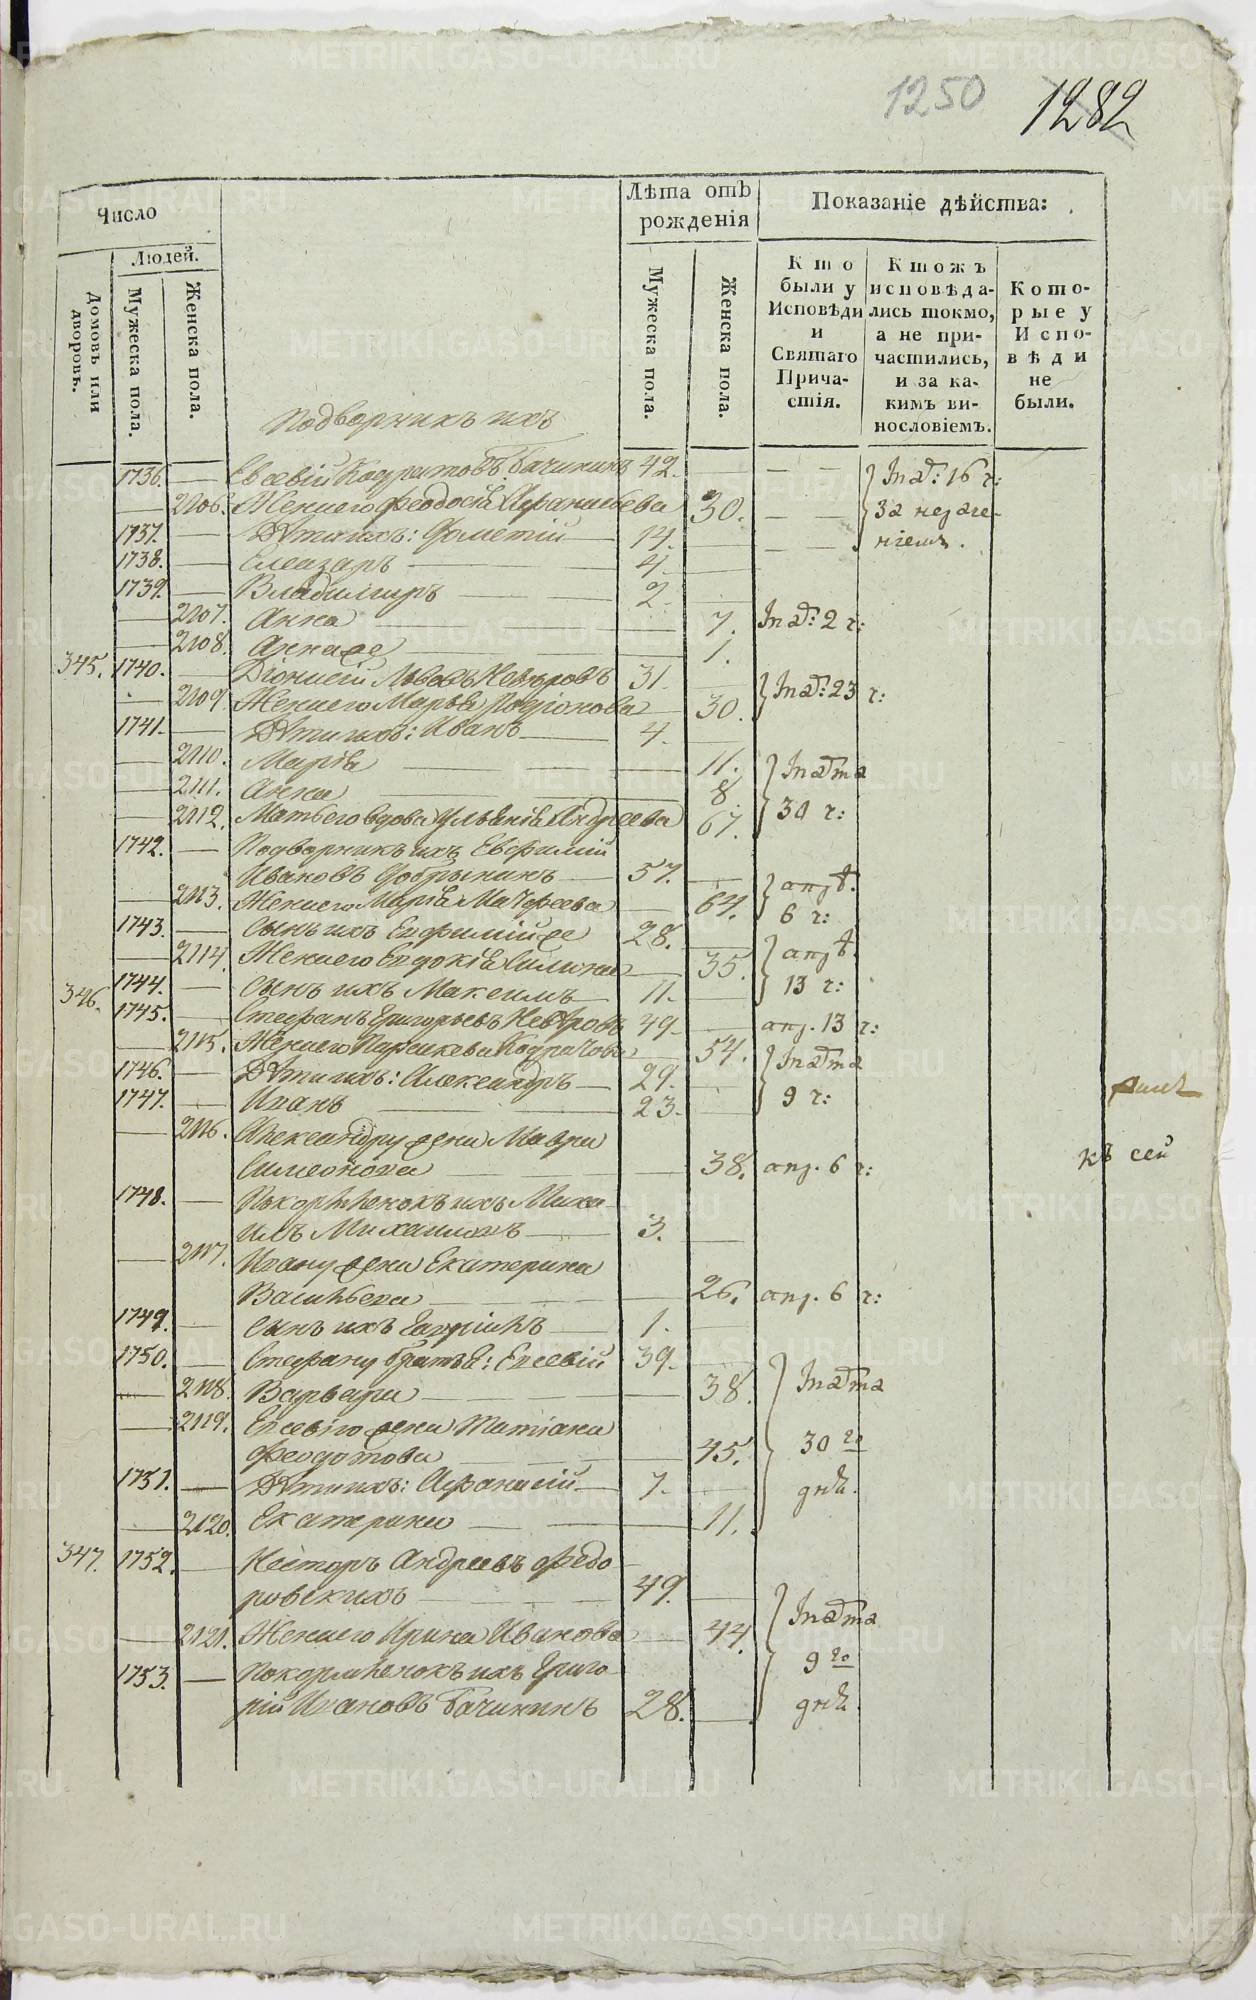 1250 1282
Число
Лѣта отъ рожденія
Показаніе дѣйства:
Людей.
Домовъ или дворовъ.
Мужеска пола.
Женска пола.
Мужеска пола.
Женска пола.
Кто были у Исповѣди и Святаго Причастія.
Ктожъ исповѣдались токмо, а не причастились, и за какимъ винословіемъ.
Которые у Исповѣди не были.
Подворникъ ихъ
1736. Евсевій Кодратовъ Бачининъ 42.
2106. Жена его Феодосія Афанасьева 30.
1737. Дѣти ихъ: Фометій 14.
1738. Елеазаръ 4.
1739. Владимиръ 2.
2107. Анна 7.
2108. Анна же 1.
345. 1740. Діонисій Львовъ Невѣровъ 31.
2109. Жена его Марья Родіонова 30.
1741. Дѣти ихъ: Иванъ 4.
2110. Марія 11.
2111. Анна 8.
2112. Мать его вдова Ульянія Андреева 67.
1742. Подворникъ ихъ Евфимій
Ивановъ Добрынинъ 57.
2113. Жена его Марія Матфеева 64.
1743. Сынъ ихъ Евфимій же 28.
2114. Жена его Евдокія Силина 35.
1744. Сынъ ихъ Максимъ 11.
346. 1745. Стефанъ Григорьевъ Невѣровъ 49.
апр. 13 ч:
2115. Жена его Параскева Кодратова 54.
1746. Дѣти ихъ: Александръ 29.
1747. Иванъ 23.
2116. Александру жена Мавра
Симеонова 38. апр. 6 ч:
1748. Покормленокъ ихъ Миха-
илъ Михаиловъ 3.
2117. Ивану жена Екатерина
Васильева 26. апр. 6 ч:
1749. Сынъ ихъ Гавріилъ 1.
1750. Стефану братья: Евсевій 39.
2118. Варвара 38.
2119. Евсевію жена Татіана
Феодотова 45.
1751. Дѣти ихъ: Афанасій 7.
2120. Екатерина 11.
347. 1752. Несторъ Андреевъ Федо
ровскихъ 49.
2121. Жена его Ирина Иванова 44.
1753. Покормленокъ ихъ Григо
рій Ивановъ Бачининъ 28.
16 ч:
за
2 ч:
23 ч:
30 ч:
6 ч:
13 ч:
9 ч:
30 го
дня.
9 го
дня.
къ сей
METRIKI.GASO-URAL.RU